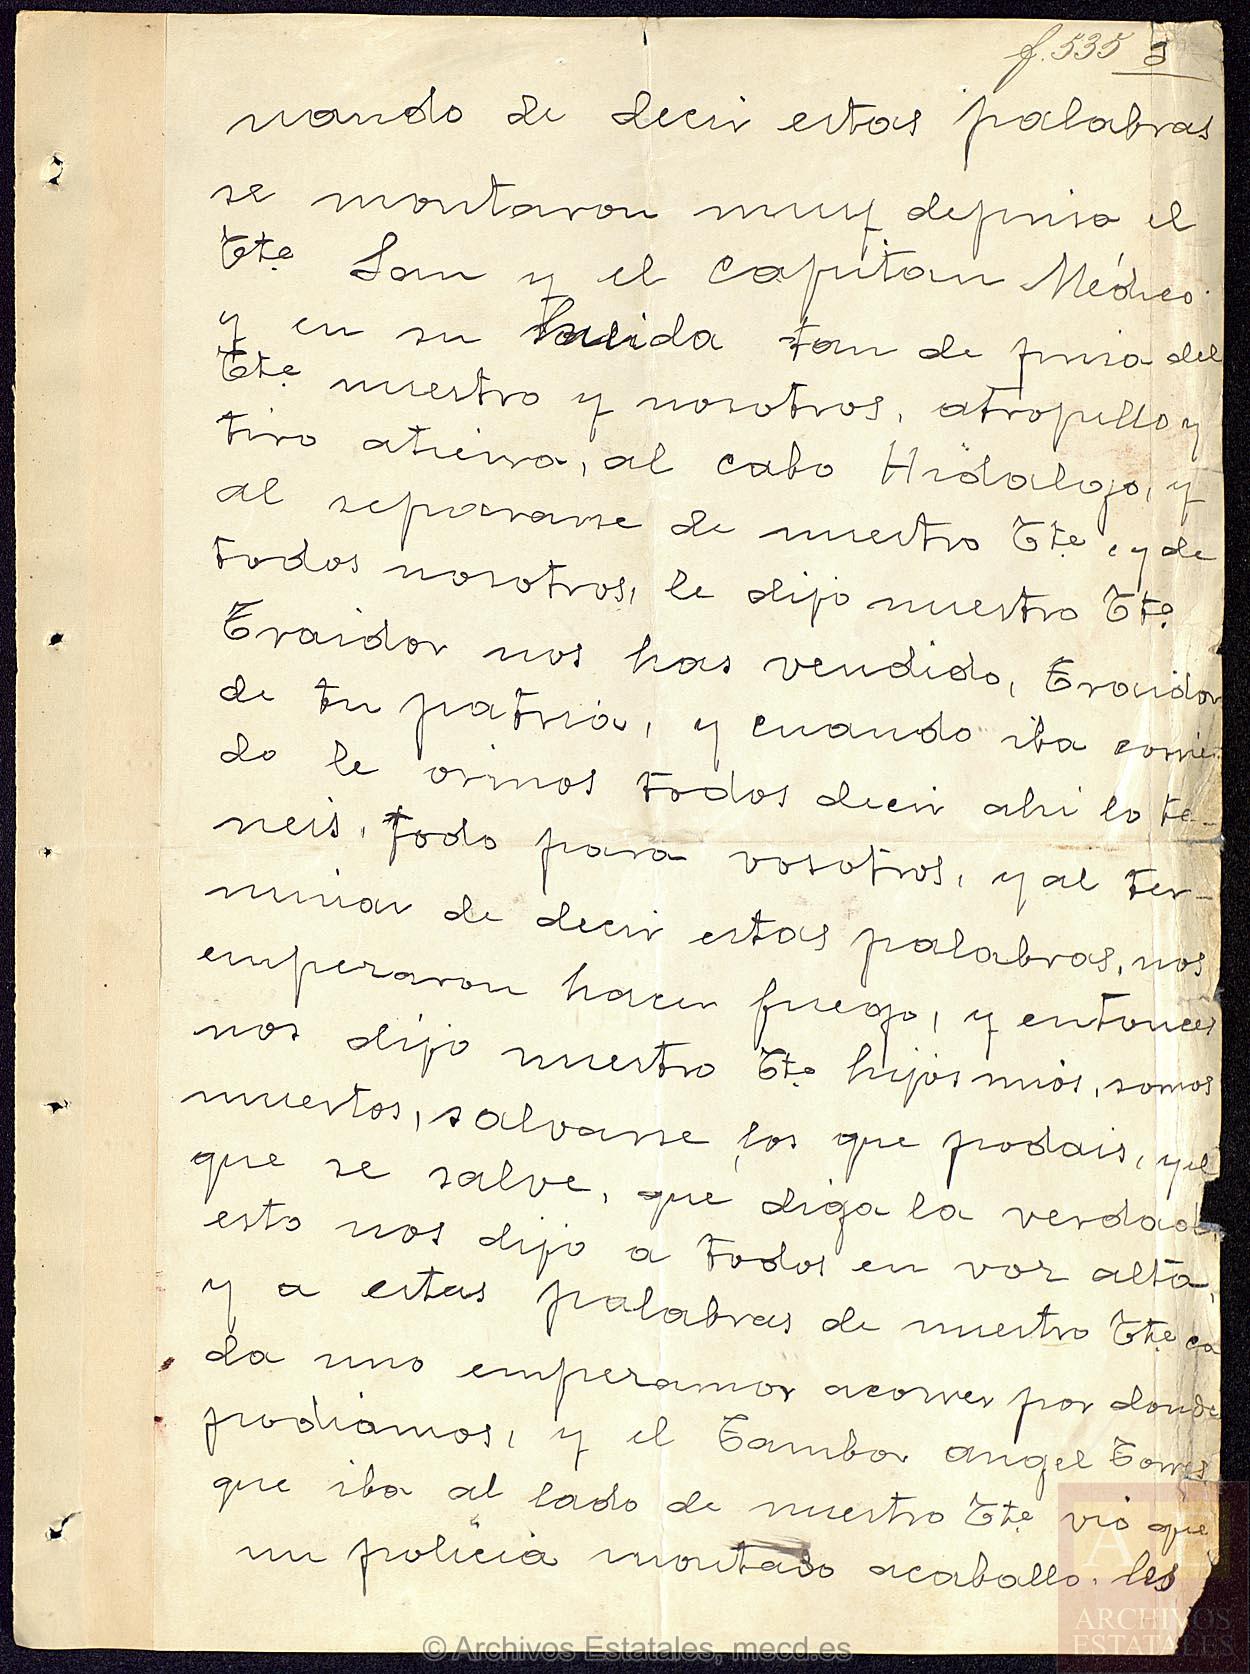 f. 535 3
nando de decir estas palabras
se montaron muy deprisa el
Tte San y el Capitan Médico
y en su huida tan de prisa del
Tte nuestro y nosotros, atropello y
tiro atierra, al cabo Hidalgo, y
al separarse de nuestro Tte, y de
todos nosotros, le dijo nuestro Tte
Traidor nos has vendido, Traidor
de tu patria, y cuando iba corrie
do le orinos todos decir ahi lo te-
neis, todo para vosotros, y al ter-
minar de decir estas palabras, nos
emperaron hacer fuego, y entonces
nos dijo nuestro Tte hijos mios, somos
muertos, salvarse los que podais, y el
que se salve, que diga la verdad,
esto nos dijo a todos en voz alta,
y a estas palabras de nuestro Tte ca
da uno emperamos acorrer por donde
podiamos, y el Tambor angel Torres
que iba al lado de nuestro Tte vió que
un policia montado acaballo. les
© Archivos Estatales, mecd.es
AE
ARCHIVOS
ESTATALES